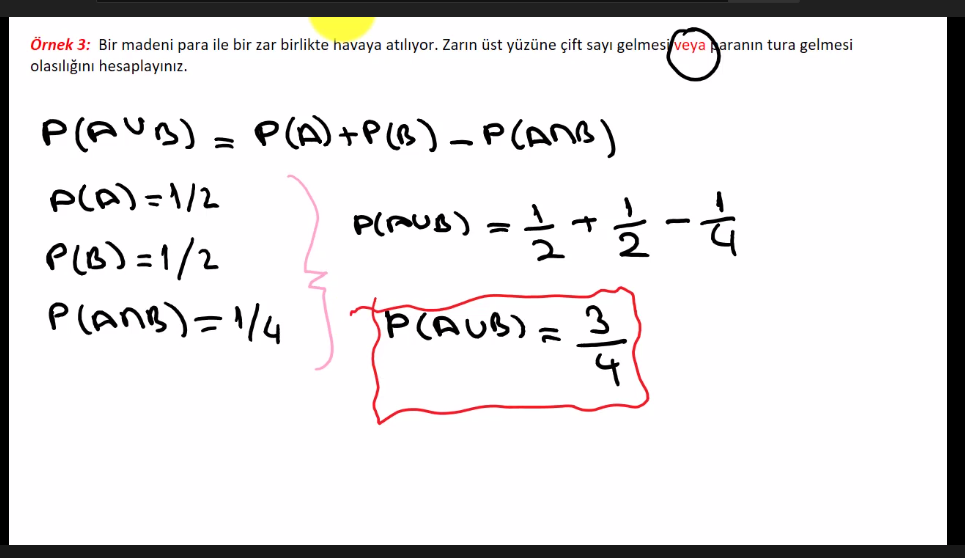 Örnek 3: Bir madeni para ile bir zar birlikte havaya atılıyor. Zarın üst yüzüne çift sayı gelmesi veya paranın tura gelmesi
olasılığını hesaplayınız.
P(A∪B) = P(A)+P(B) - P(A∩B)
P(A)=1/2
P(B)=1/2
P(A∩B)=1/4
P(A∪B) = 1/2 + 1/2 - 1/4
P(A∪B) = 3/4